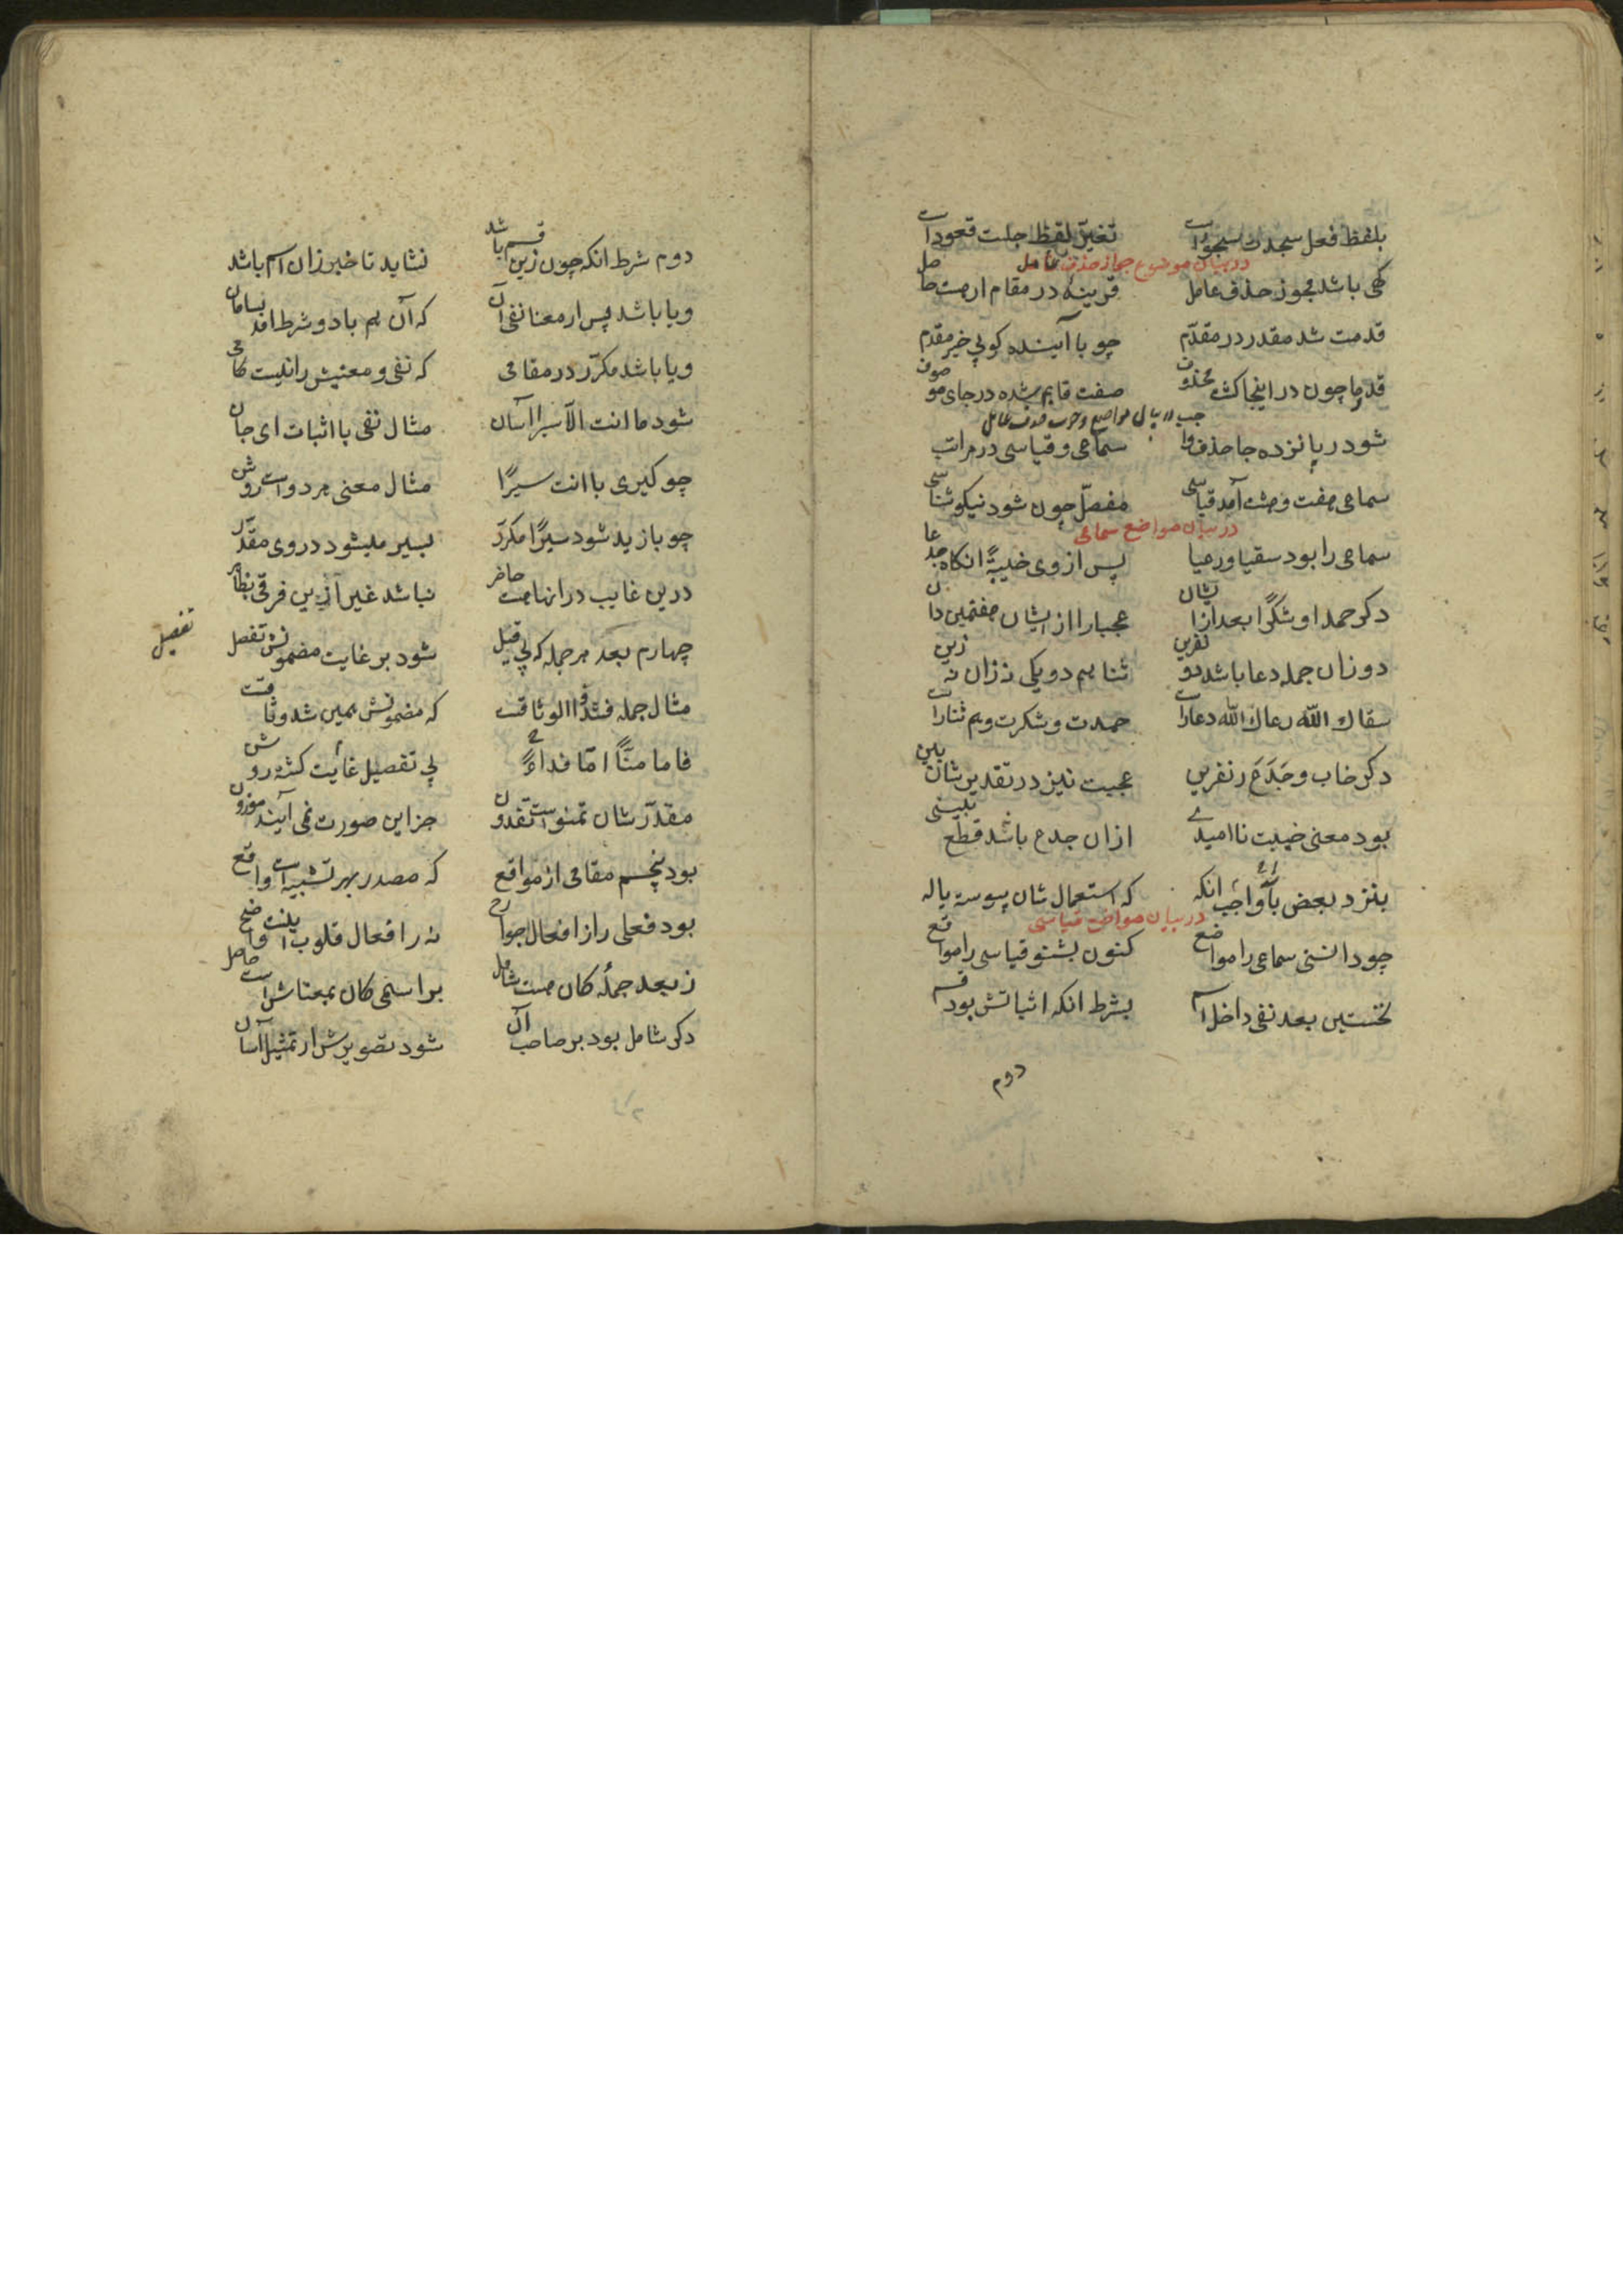 بلفظ فعل سجدت سجود است تغیر لفظ جلت قعود است
در بیان موضوع جواز حذف عامل
کهی باشد مجوز حذف عامل قرینهٔ در مقام ار هست حاصل
قدمت شد مقدر در مقدّم چو با آینده کوئی خیر مقدم
قدوما چون در اینجا کشت محذوف صفت قایم شده در جای موصوف
در بیان مواضع وجوب حذف عامل
شود در پانزده جا حذف واجب سماعی و قیاسی در مراتب
سماعی هفت و هشت آمد قیاسی مفصّل چون شود نیکو شناسی
در بیان مواضع سماعی
سماعی را بود سقیا و رعیا پس از وی خیبةً انکاه جدعا
دکر حمدا و شکرًا بعد ازایشان عجبا را از ایشان هفتمین دان
دو زان جمله دعا باشد دو نفرین ثنا هم دو یکی نه زان نه زین
سقاك الله رعاك الله دعا راست حمدت و شکرت و هم ثنا راست
دکر خاب و جَدَعَ در نفرین عجبت نیز در تقدیرشان بین
بود معنی خیبت ناامیدے ازان جدع باشد قطع بینی
بنزد بعض واجب انکه که استعمال شان پیوسته با له
در بیان مواضع قیاسی
چو دانستی سماعی را مواضع کنون بشنو قیاسی را مواقع
نخستین بعد نفی داخل اسم بشرط انکه اثباتش بود قسم
دوم
دوم شرط انکه چون زین قسم باشد نشاید تا خبر زان اسم باشد
و یا باشد پس از معنا نفی آن که آن هم با دو شرط امد بسامان
و یا باشد مکرّر در مقامی که نفی و معنیش را نیست کامی
شود ما انت الّا سیرا آسان مثال نفی با اثبات ای جان
چو کیری با انت سیرًا مثال معنی هر دو است روشن
چو با زید شود سیرًا مکرّر یسیر میشود در وی مقدّر
درین غایب در انها هست حاضر نباشد غیر ازین فرقی بظاهر
چهارم بعد هر جمله که بی قیل شود بر غایت مضمونش تفصیل
تفصیل
مثال جمله فشدّوا الوثاقست که مضمونش همین شد وثاقست
فاما منًّا امّا فداءً پی تفصیل غایت کشته روشن
مقدّرشان تمنون است تفدون جز این صورت نمی آیند موزون
بود پنجم مقامی از مواقع که مصدر بهر تشبیه است واقع
بود فعلی را از افعال جوارح نه را فعال قلوب اینست واضح
ز بعد جملهٔ کان هست شامل بر اسمی کان بمعناش است حاصل
دکر شامل بود بر صاحب آن شود تصویرش از تمثیل آسان